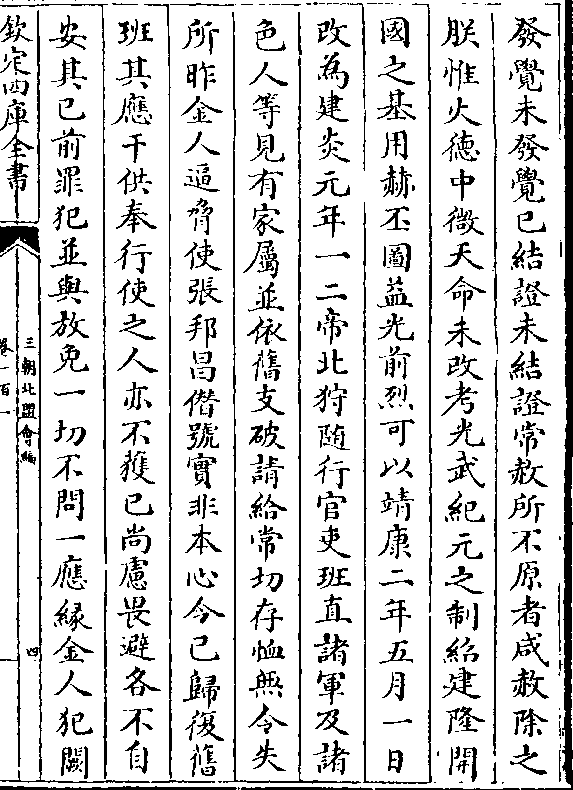 發覺未發覺已結證未結證常赦所不原者咸赦除之
朕惟火徳中微天命未改考光武紀元之制紹建隆開
國之基用赫丕圖益光前烈可以靖康二年五月一日
改為建炎元年一二帝北狩隨行官吏班直諸軍及諸
色人等見有家屬並依舊支破請給常切存恤無令失
所昨金人逼脅使張邦昌僭號實非本心今已歸復舊
班其應干供奉行使之人亦不獲已尚慮畏避各不自
安其已前罪犯並與放免一切不問一應緣金人犯闕
欽定四庫全書
三朝北盟會編
卷一百一
四